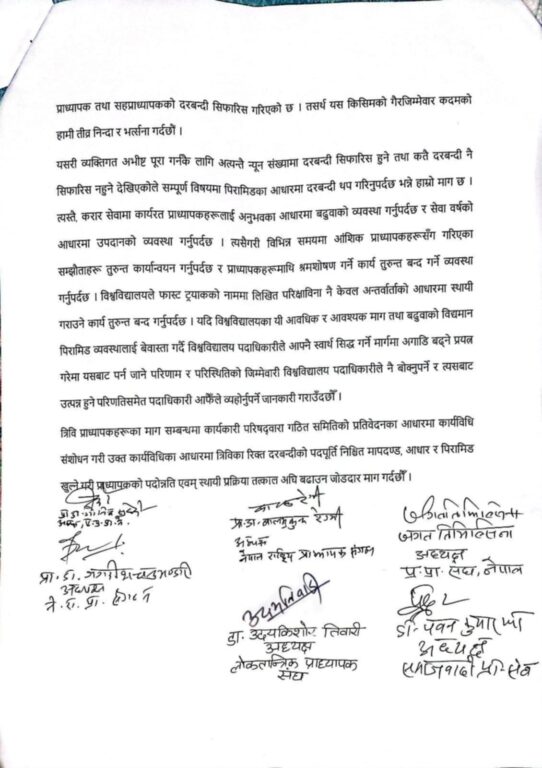 प्राध्यापक तथा सहप्राध्यापकको दरबन्दी सिफारिस गरिएको छ । तसर्थ यस किसिमको गैरजिम्मेवार कदमको
हामी तीव्र निन्दा र भर्त्सना गर्दछौं ।
यसरी व्यक्तिगत अभीष्ट पूरा गर्नकै लागि अत्यन्तै न्यून संख्यामा दरबन्दी सिफारिस हुने तथा कतै दरबन्दी नै
सिफारिस नहुने देखिएकोले सम्पूर्ण विषयमा पिरामिडका आधारमा दरबन्दी थप गरिनुपर्दछ भन्ने हाम्रो माग छ ।
त्यस्तै, करार सेवामा कार्यरत प्राध्यापकहरूलाई अनुभवका आधारमा बढुवाको व्यवस्था गर्नुपर्दछ र सेवा वर्षको
आधारमा उपदानको व्यवस्था गर्नुपर्दछ । त्यसैगरी विभिन्न समयमा आंशिक प्राध्यापकहरूसँग गरिएका
सम्झौताहरू तुरुन्त कार्यान्वयन गर्नुपर्दछ र प्राध्यापकहरूमाथि श्रमशोषण गर्ने कार्य तुरुन्त बन्द गर्ने व्यवस्था
गर्नुपर्दछ । विश्वविद्यालयले फास्ट ट्र्याकको नाममा लिखित परिक्षाविना नै केवल अन्तर्वार्ताको आधारमा स्थायी
गराउने कार्य तुरुन्त बन्द गर्नुपर्दछ । यदि विश्वविद्यालयका यी आवधिक र आवश्यक माग तथा बढुवाको विद्यमान
पिरामिड व्यवस्थालाई बेवास्ता गर्दै विश्वविद्यालय पदाधिकारीले आफ्नै स्वार्थ सिद्ध गर्ने मार्गमा अगाडि बढ्ने प्रयत्न
गरेमा यसबाट पर्न जाने परिणाम र परिस्थितिको जिम्मेवारी विश्वविद्यालय पदाधिकारीले नै बोक्नुपर्ने र त्यसबाट
उत्पन्न हुने परिणतिसमेत पदाधिकारी आफैँले व्यहोर्नुपर्ने जानकारी गराउँदछौं ।
त्रिवि प्राध्यापकहरूका माग सम्बन्धमा कार्यकारी परिषद्द्वारा गठित समितिको प्रतिवेदनका आधारमा कार्यविधि
संशोधन गरी उक्त कार्यविधिका आधारमा त्रिविका रिक्त दरबन्दीको पदपूर्ति निश्चित मापदण्ड, आधार र पिरामिड
खुल्ने गरी प्राध्यापकको पदोन्नति एवम् स्थायी प्रक्रिया तत्काल अघि बढाउन जोडदार माग गर्दछौं ।
प्रा.डा. बालमुकुन्द रेग्मी
अध्यक्ष
नेपाल राष्ट्रिय प्राध्यापक संगठन
जगत तिमिल्सिना
अध्यक्ष
प्र. प्रा. संघ, नेपाल
प्रा. डा. जगदीश चन्द्र भण्डारी
अध्यक्ष
ने. रा. प्रा. संगठन
डा. उदयकिशोर तिवारी
अध्यक्ष
लोकतान्त्रिक प्राध्यापक
संघ
डा. पवन कुमार झा
अध्यक्ष
समाजवादी